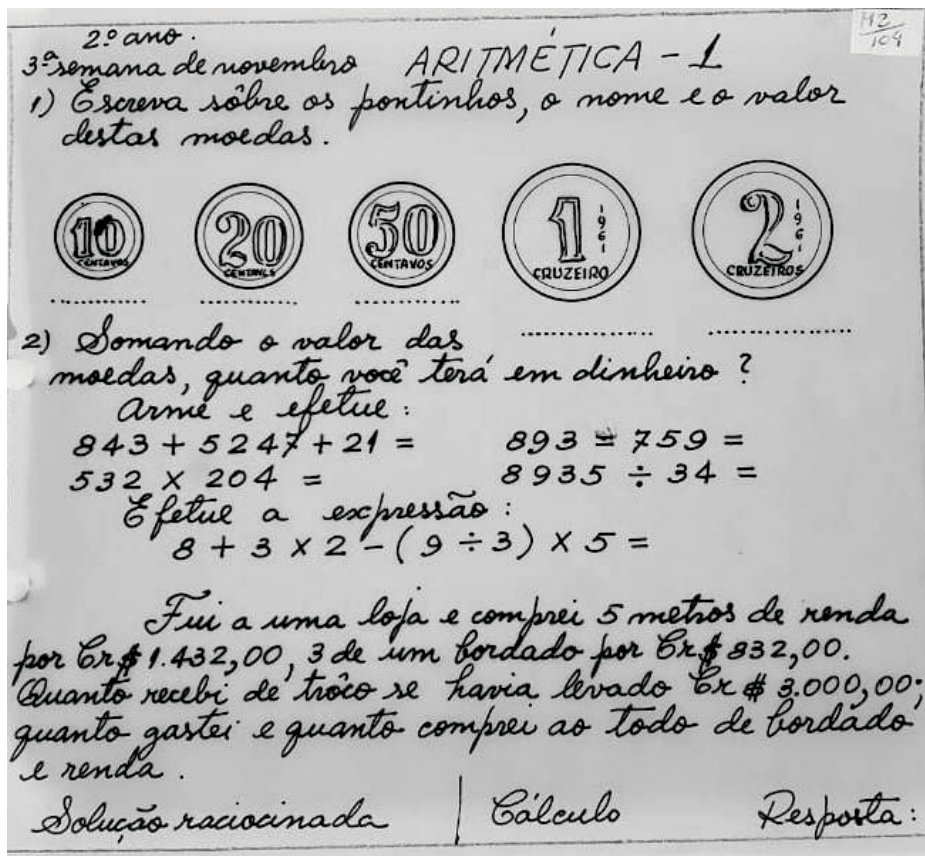 2º ano.
H2
104
3ª semana de novembro ARITMÉTICA - 1
1) Escreva sôbre os pontinhos, o nome e o valor
destas moedas.
10 CENTAVOS
20 CENTAVOS
50 CENTAVOS
1 1961 CRUZEIRO
2 1961 CRUZEIROS
.............. .............. .............. .................. ...................
2) Somando o valor das
moedas, quanto você terá em dinheiro?
Arme e efetue:
843 + 5247 + 21 = 893 = 759 =
532 × 204 = 8935 ÷ 34 =
Efetue a expressão:
8 + 3 × 2 - (9 ÷ 3) × 5 =
Fui a uma loja e comprei 5 metros de renda
por Cr$ 1.432,00, 3 de um bordado por Cr$ 832,00.
Quanto recebi de trôco se havia levado Cr$ 3.000,00;
quanto gastei e quanto comprei ao todo de bordado
e renda.
Solução raciocinada | Cálculo Resposta: